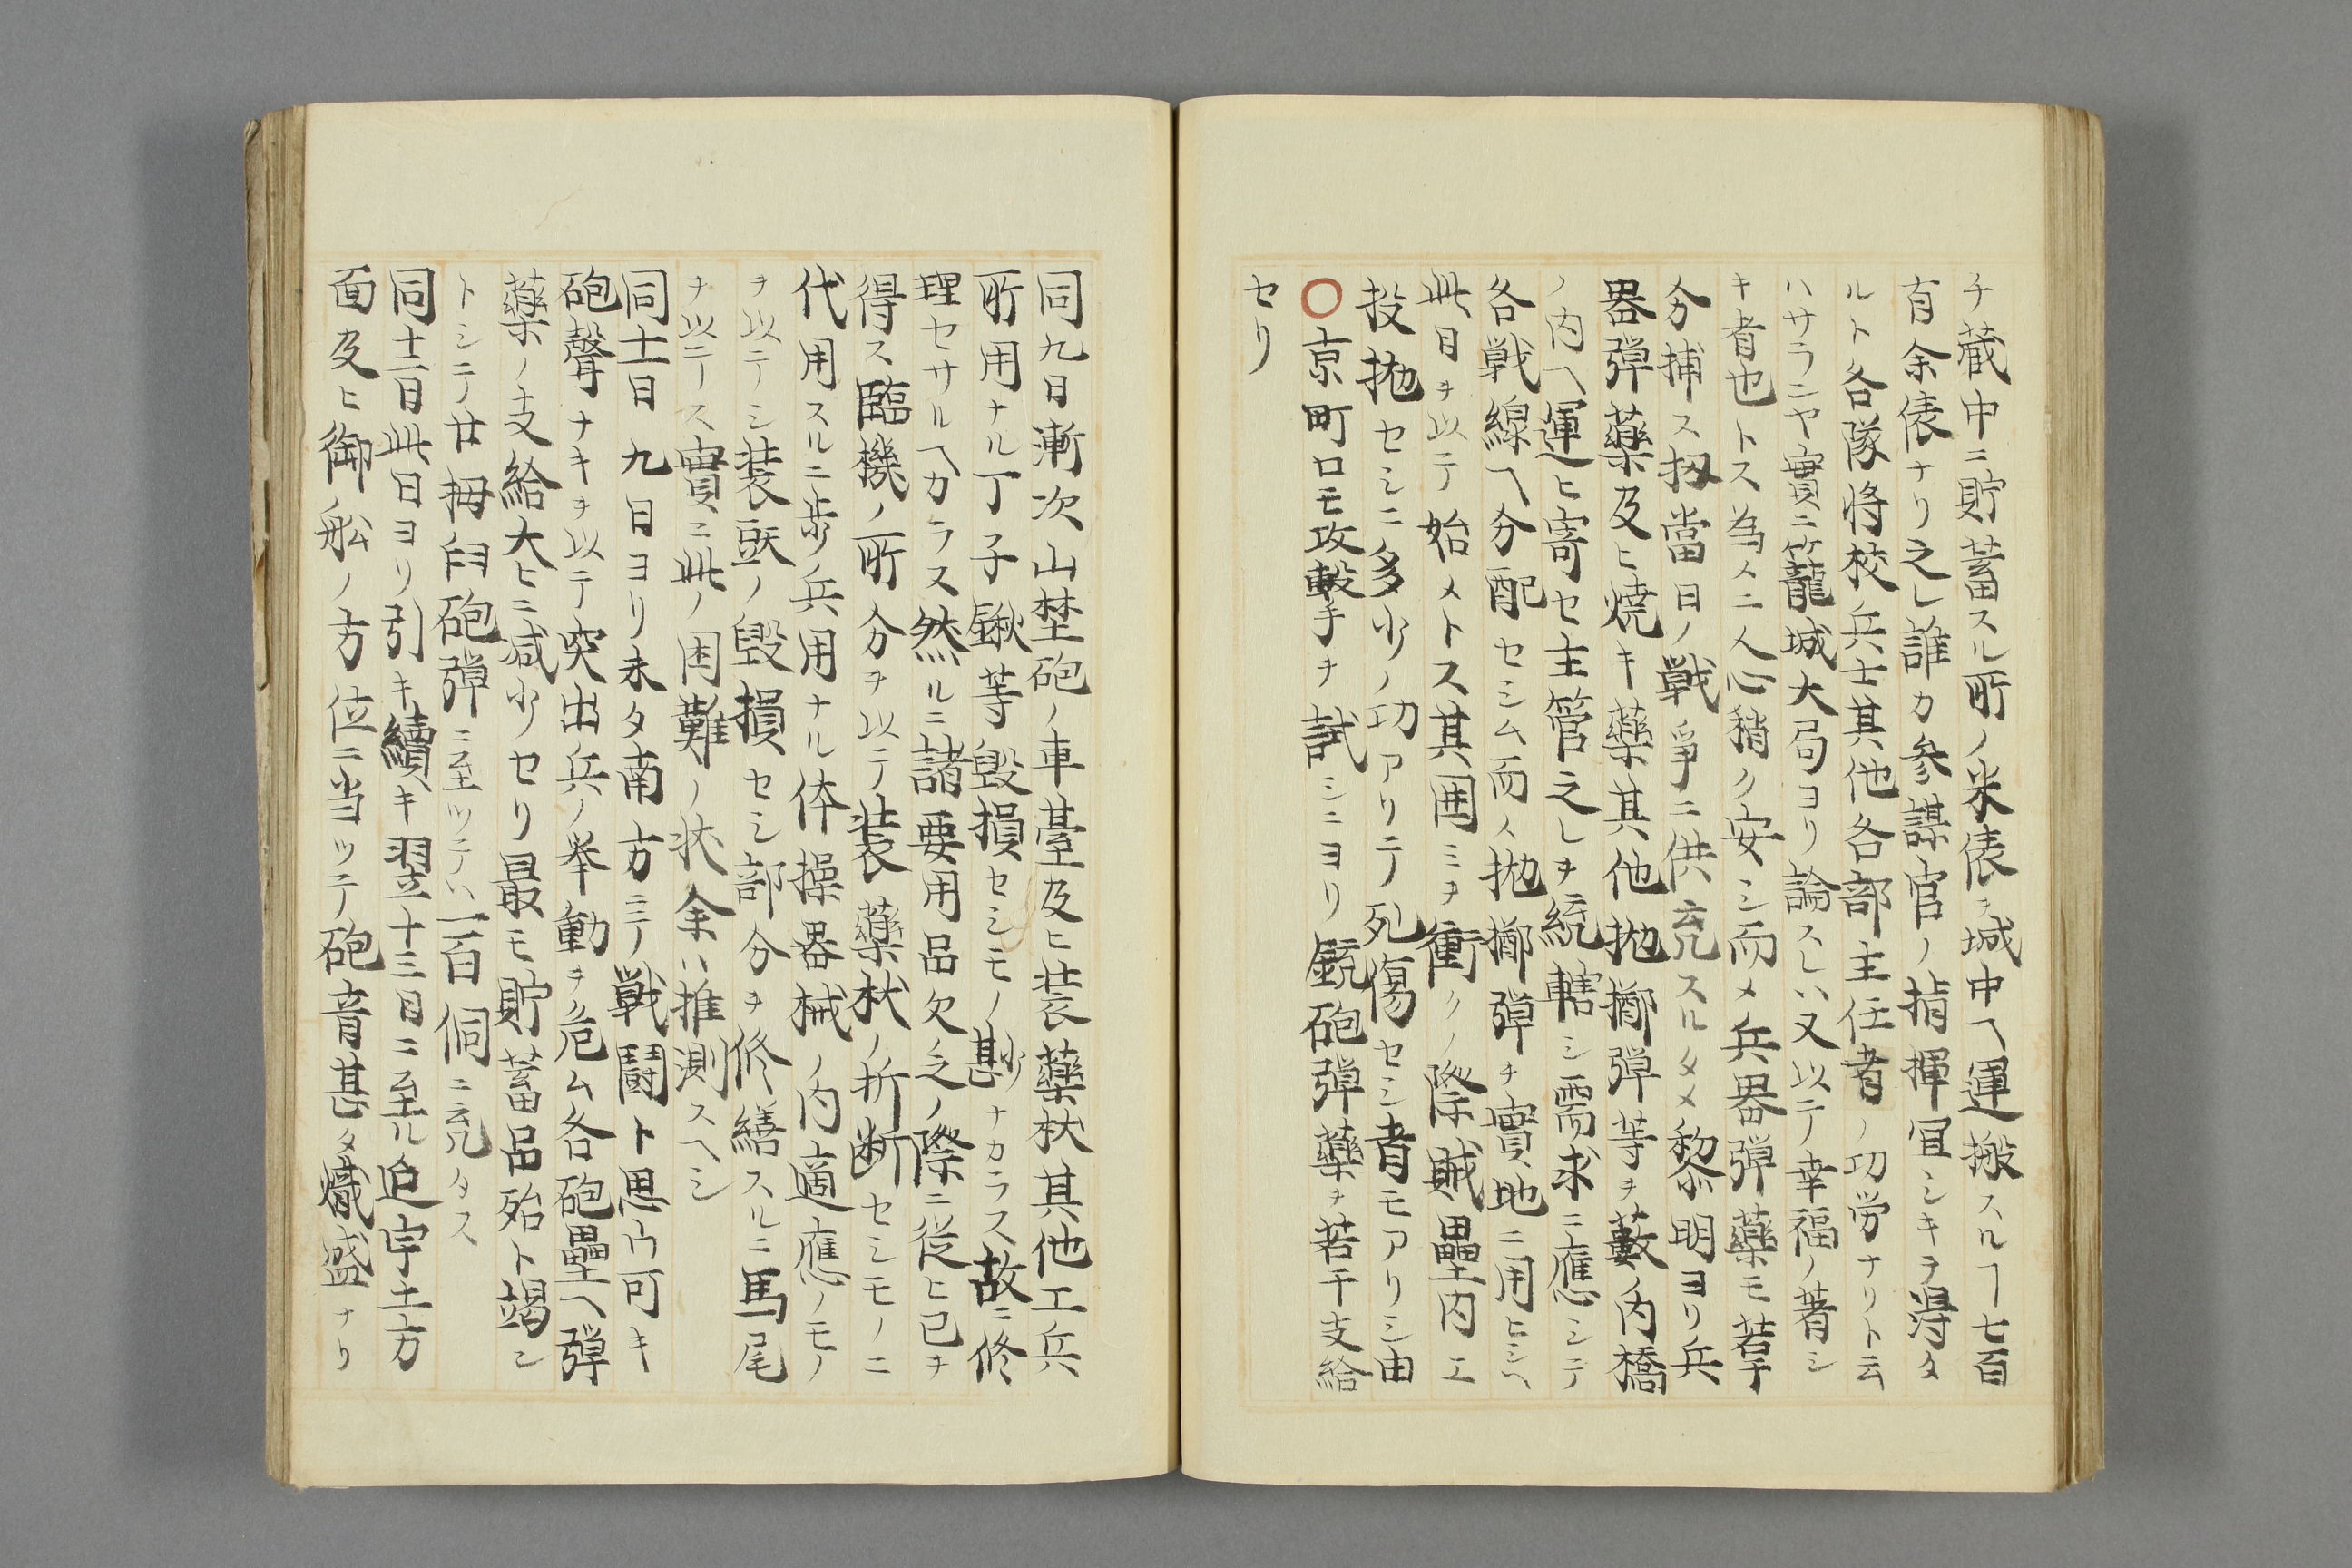 チ蔵中ニ貯蓄スル所ノ米俵ヲ城中ヘ運搬スルヿ七百
有余俵ナリ之レ誰カ参謀官ノ指揮宜シキヲ得タ
ルト各隊将校兵士其他各部主任者ノ功労ナリト云
ハサランヤ實ニ籠城大局ヨリ論スレハ又以テ幸福ノ著シ
キ者也トス為メニ人心稍ク安シ而メ兵器弾藥モ若干
分捕ス扨當日ノ戦爭ニ供充スルタメ黎明ヨリ兵
器弾藥及ヒ焼キ藥其他抛擲弾等ヲ薮ノ内橋
ノ内ヘ運ヒ寄セ主管之レヲ統轄シ需求ニ應シテ
各戦線ヘ分配セシム而メ抛擲弾ヲ實地ニ用ヒシハ
此日ヲ以テ始メトス其囲ミヲ衝クノ際賊壘内エ
投抛セシニ多少ノ功アリテ死傷セシ者モアリシ由
〇京町口モ攻撃ヲ試シニヨリ銃砲弾藥ヲ若干支給
セリ
同九日漸次山埜砲ノ車臺及ヒ装藥杖其他工兵
所用ナル丁子鍬等毀損セシモノ尠ナカラス故ニ修
理セサルヘカラス然ルニ諸要用品欠之ノ際ニ従ヒ已ヲ
得ス臨機ノ所分ヲ以テ装藥杖ノ折断セシモノニ
代用スルニ歩兵用ナル体操器械ノ内適應ノモノ
ヲ以テシ装頭ノ毀損セシ部分ヲ修繕スルニ馬尾
ヲ以テス實ニ此ノ困難ノ状余ハ推測スヘシ
同十一日九日ヨリ未タ南方ニテノ戦闘ト思フ可キ
砲聲ナキヲ以テ突出兵ノ挙動ヲ危ム各砲壘ヘ弾
藥ノ支給大ヒニ减少セリ最モ貯蓄品殆ト竭ン
トシテ廿拇臼砲弾ニ至ツテハ一百個ニ充タス
同十二日此日ヨリ引キ續キ翌十三日ニ至ル迄宇土方
面及ヒ御舩ノ方位ニ当ツテ砲音甚タ熾盛ナリ